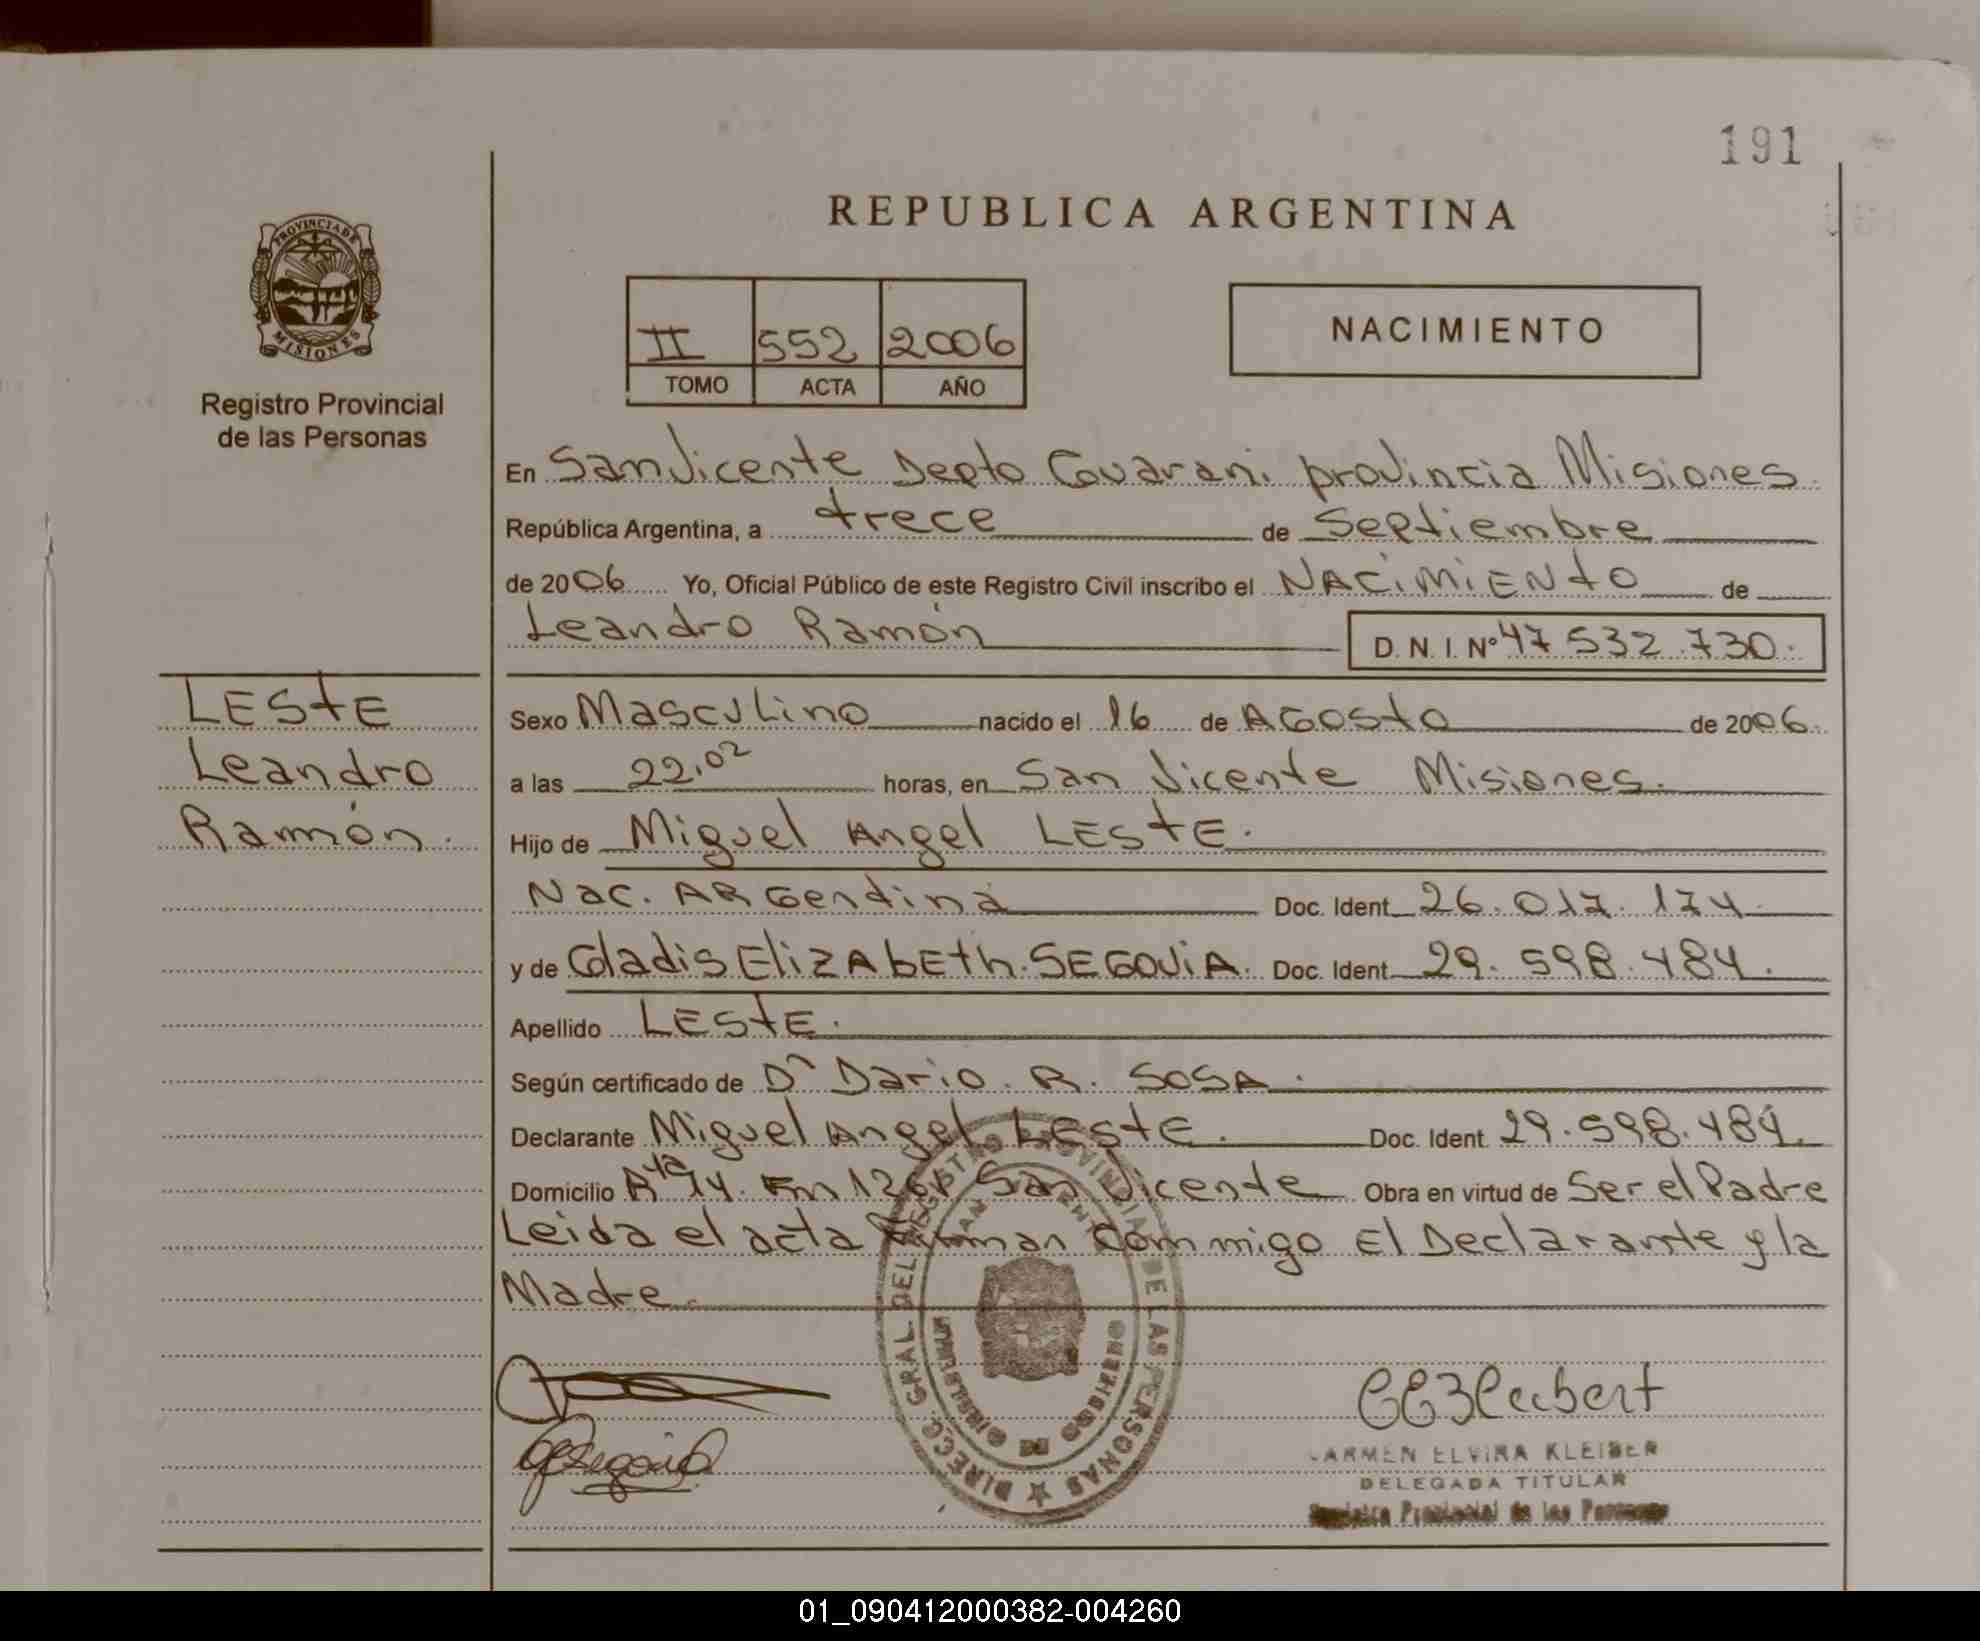 191
REPUBLICA ARGENTINA
PROVINCIA DE
MISIONES
Registro Provincial
de las Personas
II 552 2006
TOMO ACTA AÑO
NACIMIENTO
En San Vicente Depto Guarani provincia Misiones
República Argentina, a trece de Septiembre
de 2006 Yo, Oficial Público de este Registro Civil inscribo el NACIMIENtO de
Leandro Ramón D. N. I. Nº 47 532 730.
LEStE
Leandro
Ramón.
Sexo Masculino nacido el 16 de AGOSto de 2006.
a las 22.02 horas, en San Vicente Misiones.
Hijo de Miguel Angel LEStE.
Nac. ARGentina Doc. Ident. 26.017.174
y de Gladis ElizAbEth. SEGOViA. Doc. Ident. 29.598.484.
Apellido LEStE.
Según certificado de Dr Dario. R. SOSA.
Declarante Miguel Angel LEStE. Doc. Ident. 29.598.484.
Domicilio Rta 14. Km 1261 San Vicente Obra en virtud de Ser el Padre
Leida el acta Firman Commigo El Declarante y la
Madre.
DIRECC. GRAL. DEL REGISTRO PROVINCIAL DE LAS PERSONAS
CARMEN ELVIRA KLEIBER
DELEGADA TITULAR
Registro Provincial de las Personas
01_090412000382-004260